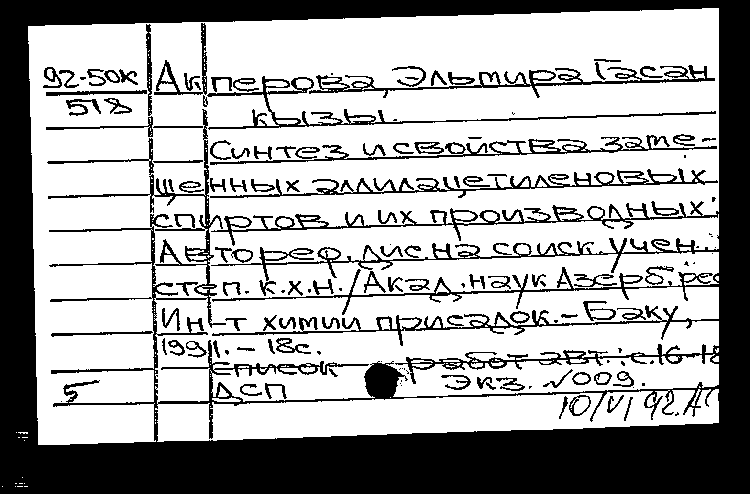 92-50к Акперова, Эльмира Гасан
518 кызы.
Синтез и свойства заме-
щенных аллилацетиленовых
спиртов и их производных:
Автореф. дис. на соиск. учен.
степ. к.х.н. / Акад. наук Азерб. рес
Ин-т химии присадок. - Баку,
1991. - 18с.
список работ авт.: с.16-18
5 ДСП Экз. №009.
10/VI 92.